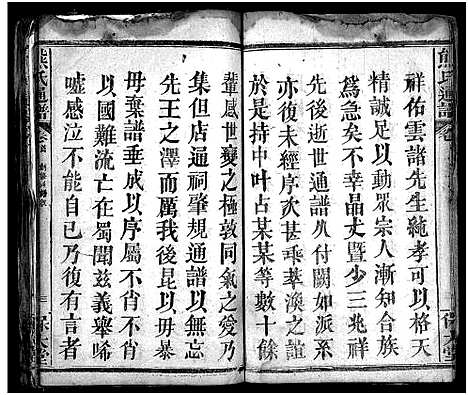 熊氏通譜
祥佑雲諸先生純孝可以格天
精誠足以動眾宗人漸知合族
為急矣不干晶丈暨少三兆赫
亦復未經序次甚乖萃渙之誼
於是持中叶占某某等數十餘
輩感世變之極敦同氣之愛乃
集但店通祠肇規通譜以無忘
先王之澤而厲我後昆以毋暴
毋棄譜垂成以序屬不肖不肖
以國難流亡在蜀聞茲義舉唏
噓感泣不能自已乃復有言者
熊氏通譜
保大堂